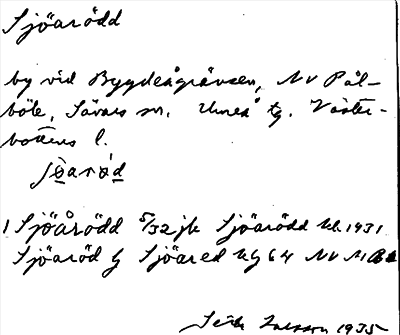 Sjöarödd
by vid Bygdeågränsen, NV Pål-
böle, Sävars sn. Umeå tg. Väster-
bottens l.
1 Sjöårödd 5/32 jk Sjöarödd 1931
Sjöaröd Sjöared 64 NV
Larsson 1935